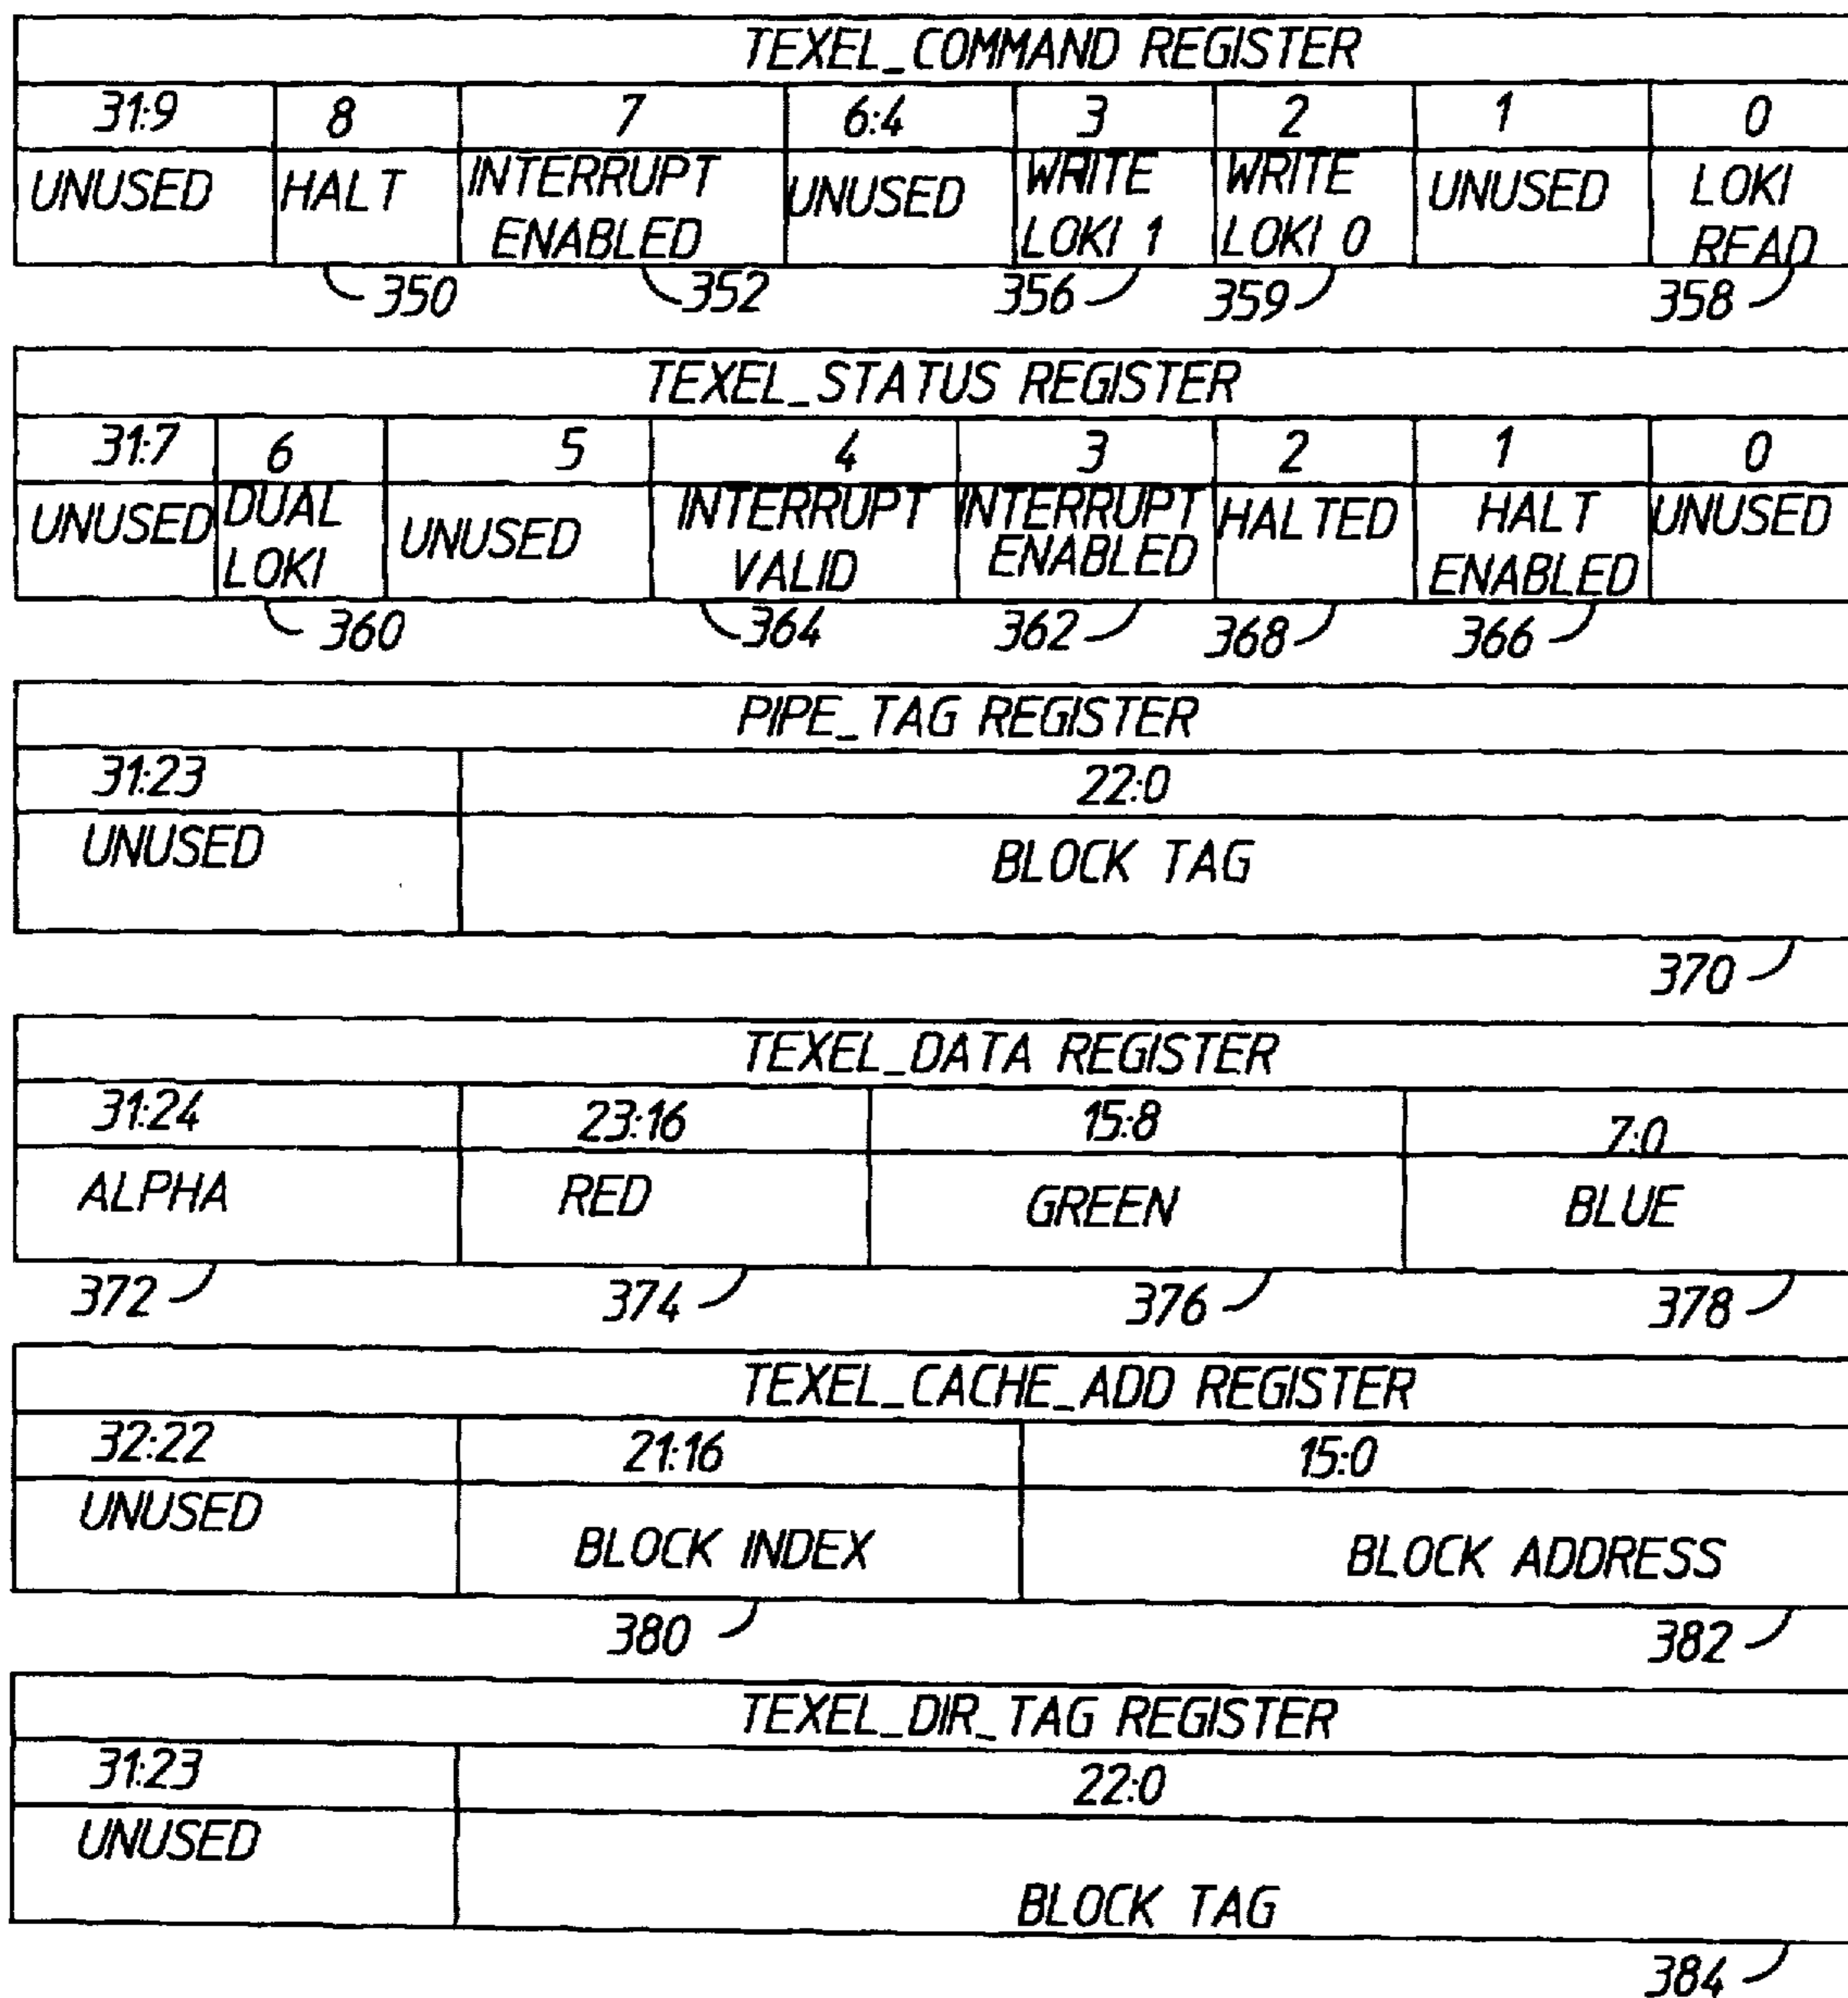 TEXEL_COMMAND REGISTER
31:9 8 7 6:4 3 2 1 0
UNUSED HALT INTERRUPT UNUSED WRITE WRITE UNUSED LOKI
ENABLED LOKI 1 LOKI 0 READ
350 352 356 359 358
TEXEL_STATUS REGISTER
31:7 6 5 4 3 2 1 0
UNUSED DUAL UNUSED INTERRUPT INTERRUPT HALTED HALT UNUSED
LOKI VALID ENABLED ENABLED
360 364 362 368 366
PIPE_TAG REGISTER
31:23 22:0
UNUSED BLOCK TAG
370
TEXEL_DATA REGISTER
31:24 23:16 15:8 7:0
ALPHA RED GREEN BLUE
372 374 376 378
TEXEL_CACHE_ADD REGISTER
32:22 21:16 15:0
UNUSED BLOCK INDEX BLOCK ADDRESS
380 382
TEXEL_DIR_TAG REGISTER
31:23 22:0
UNUSED
BLOCK TAG
384